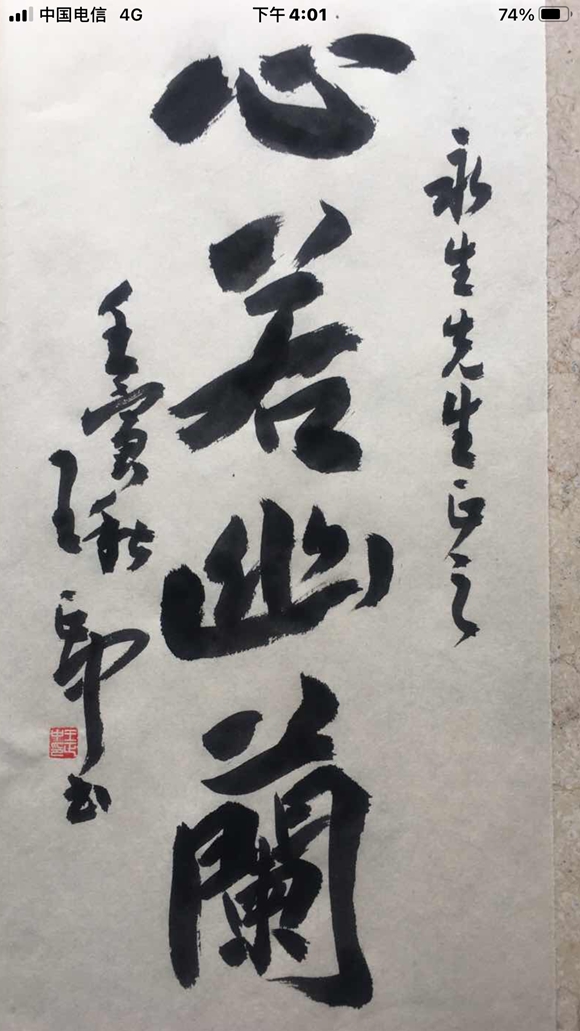 中国电信 4G 下午4:01 74%
永生先生正之
心若幽蘭
壬寅秋
王正中书